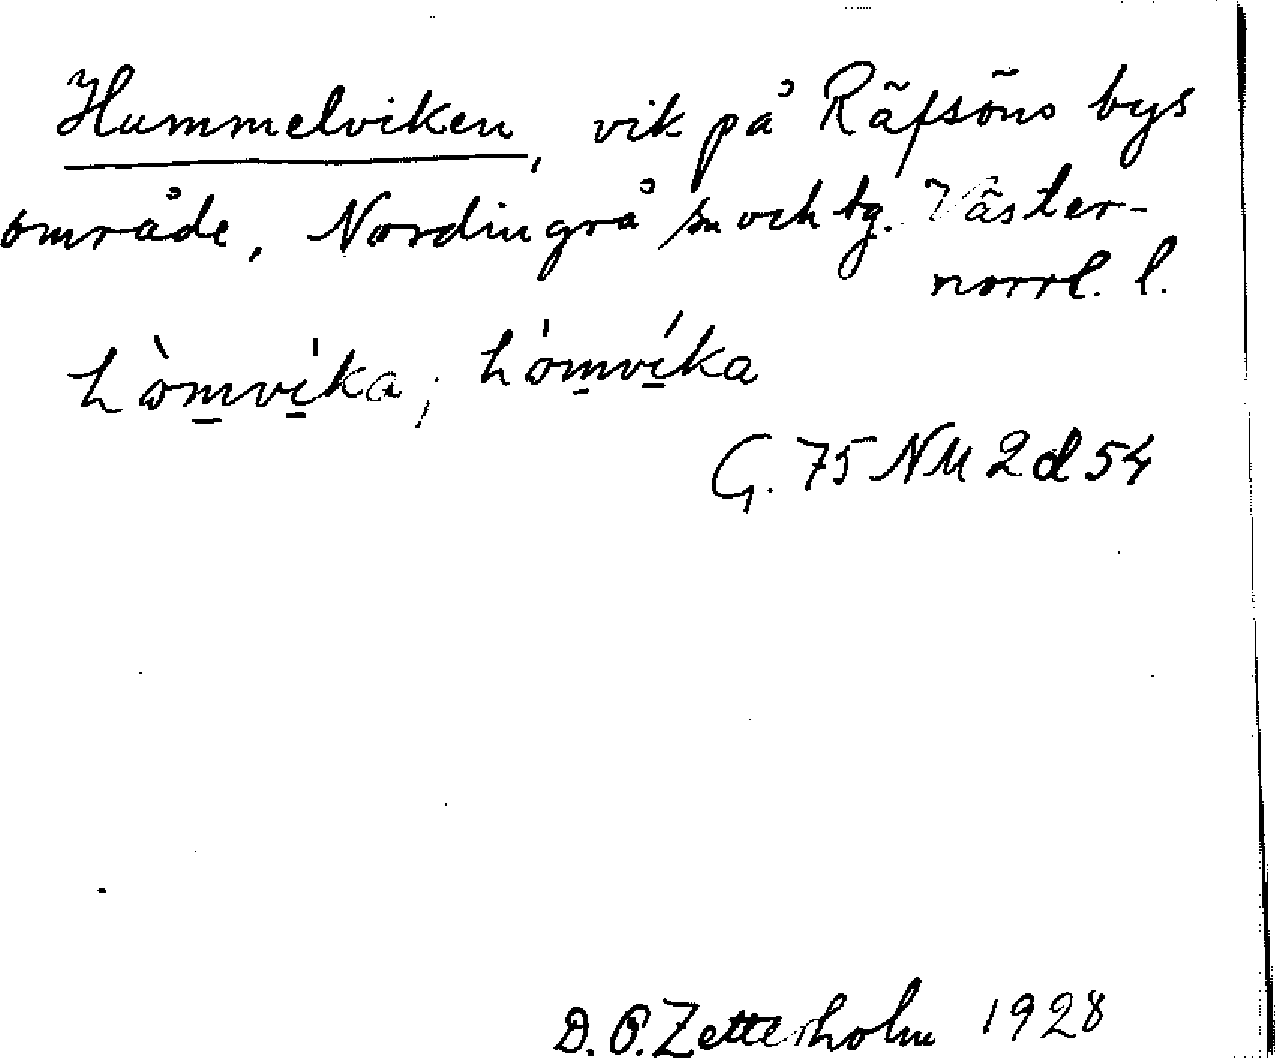 Hummelviken, vik på Räfsöns bys
område, Nordingrå sn och tg. Väster-
norrl. l.
hòm̱vi̱ka; hóm̱ví̱ka
G. 75 NM 2 d 54
D. O. Zetterholm 1928